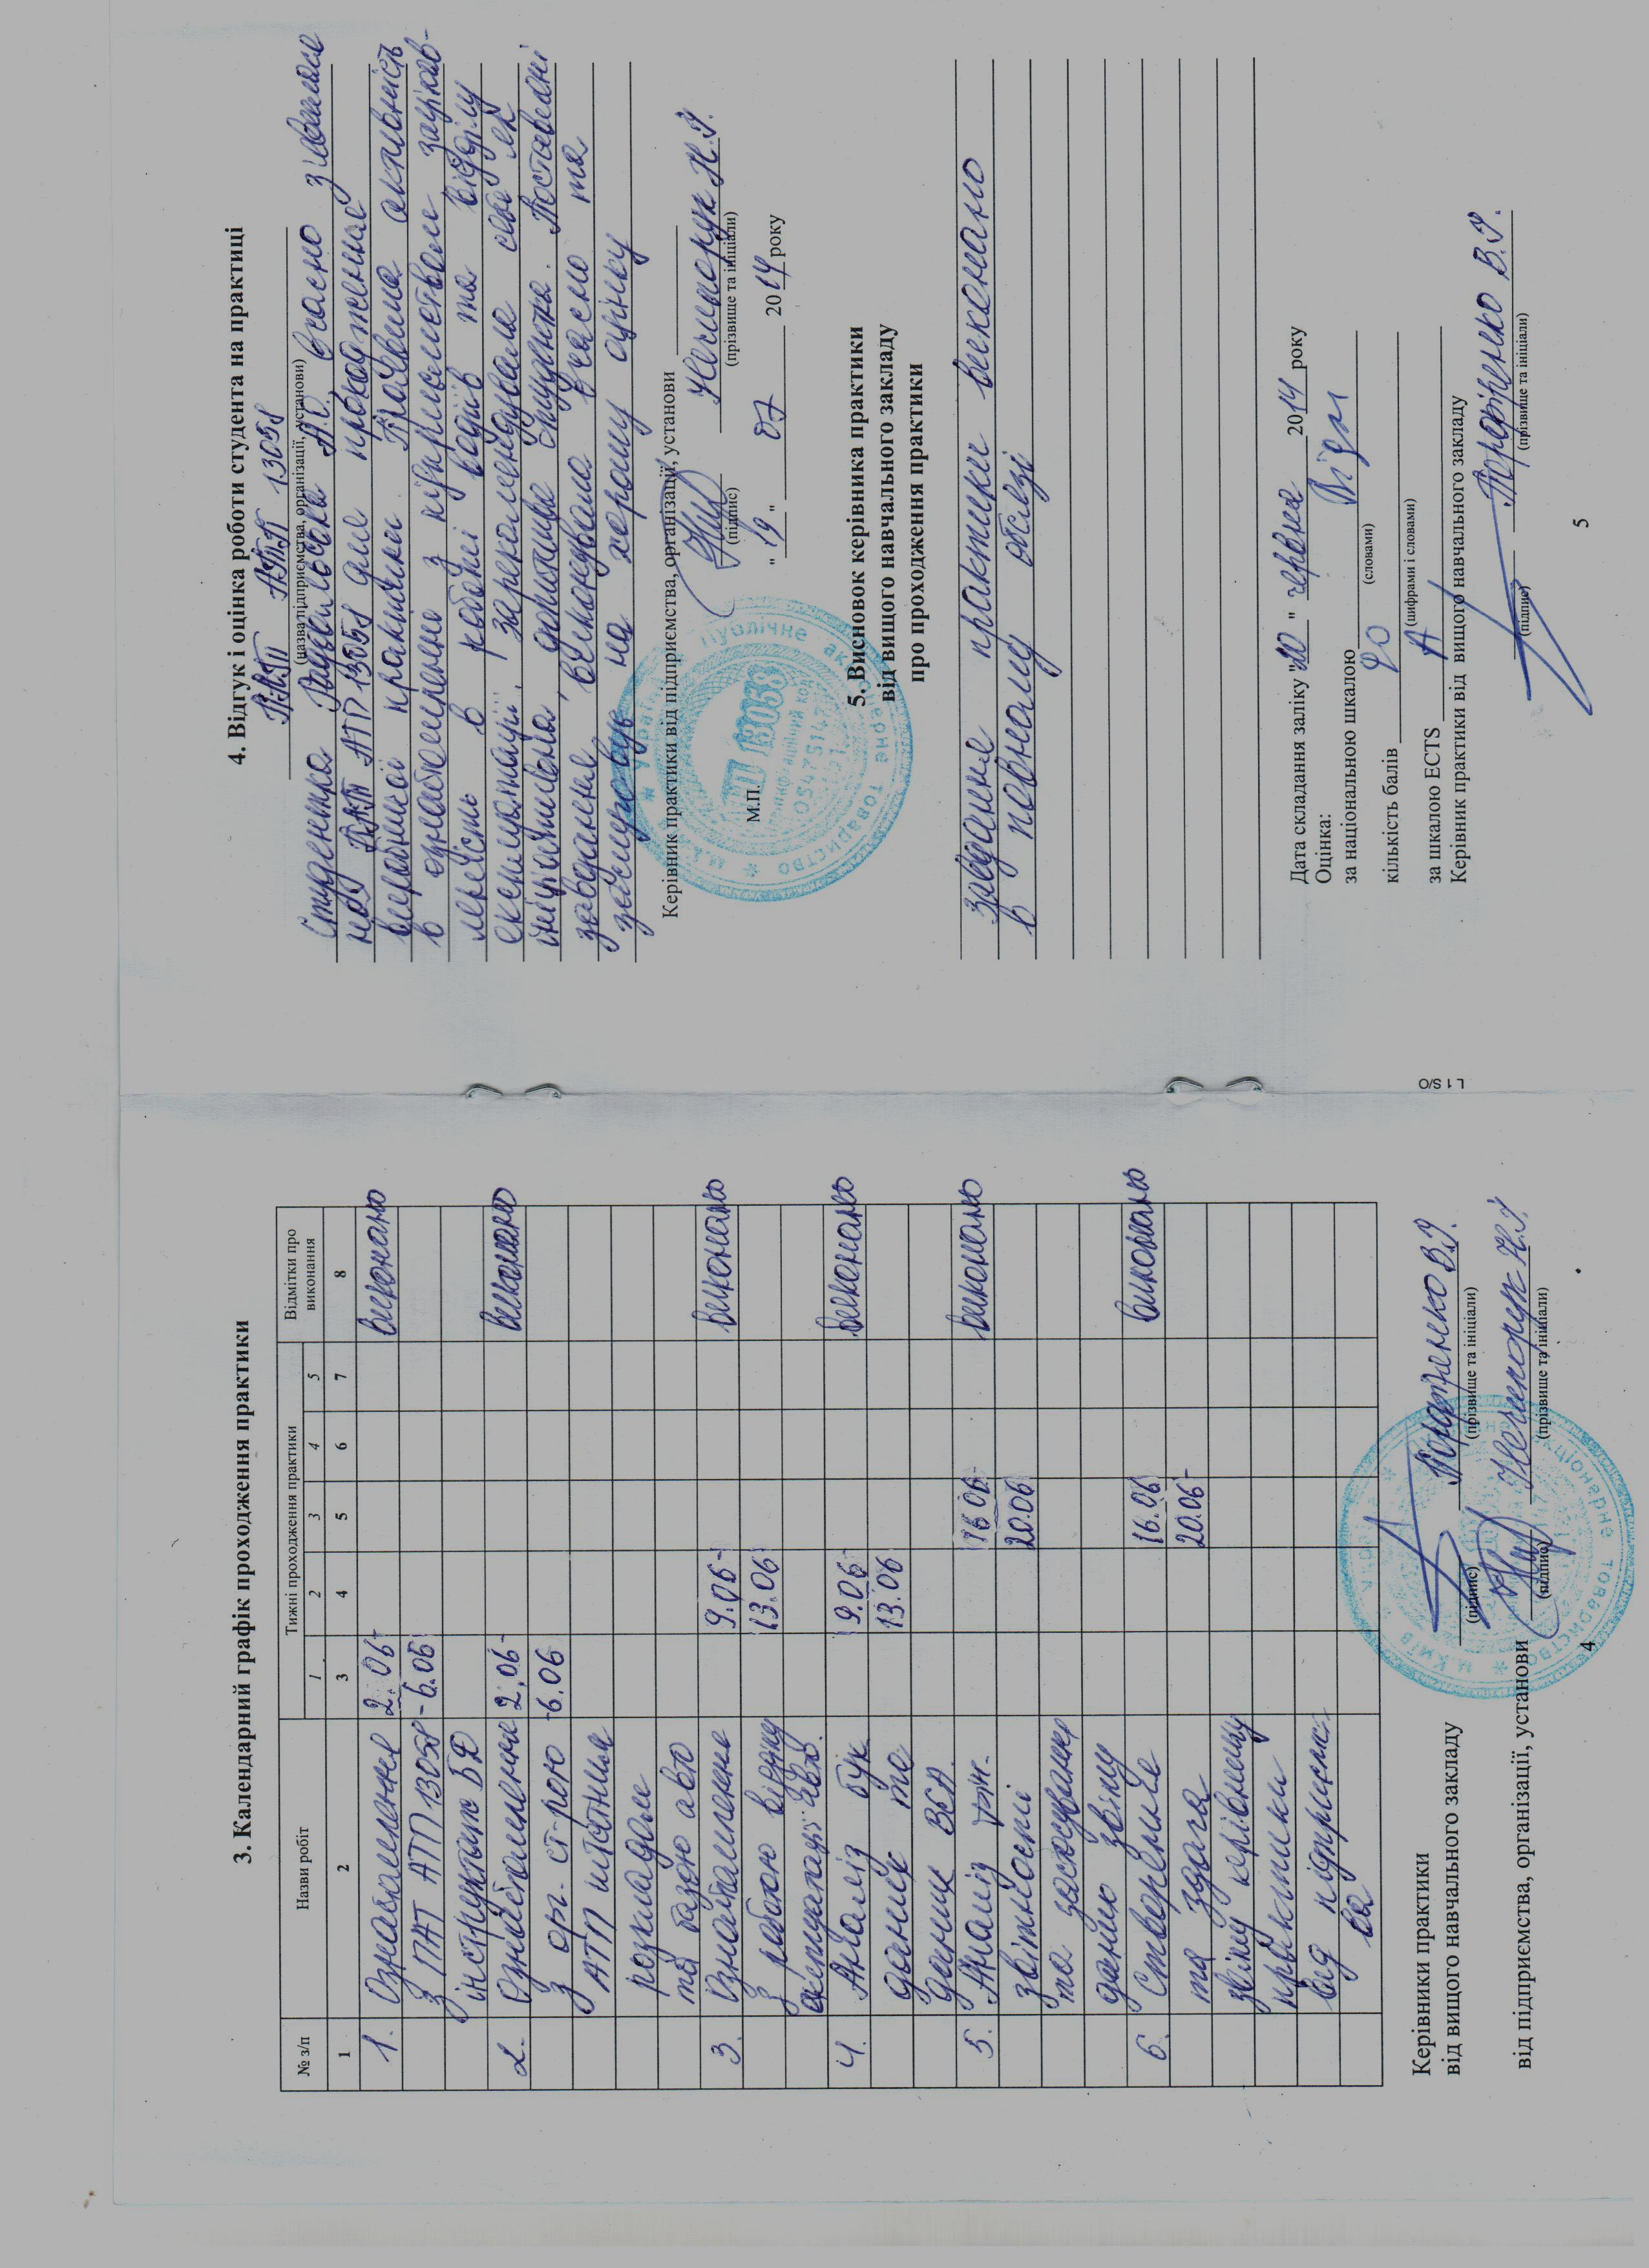 3. Календарний графік проходження практики
№ з/п
Назви робіт
Тижні проходження практики
Відмітки про
виконання
1 2 3 4 5
1 2 3 4 5 6 7 8
1. Ознайомлення 2.06- виконано
з ПАТ АТП 13058 -6.06
інструктаж БД
2. Ознайомлення 2.06- виконано
з орг. ст-рою -6.06
АТП штатним
розкладом
та базою авто
3. Ознайомлення 9.06- виконано
з работою відділу 13.06
експлуатації авто.
4. Аналіз бух. 9.06- виконано
даних та 13.06
5. Аналіз 16.06- виконано
звітності 20.06
та застосування
даних звіту
6. Створення 16.06 виконано
та здача 20.06-
звіту керівнику
практики
від підприємст-
ва
Керівники практики
від вищого навчального закладу
(підпис)
(прізвище та ініціали)
від підприємства, організації, установи
(підпис)
(прізвище та ініціали)
4
4. Відгук і оцінка роботи студента на практиці
ПАТ АТП 13058
(назва підприємства, організації, установи)
Студентка А.С. вчасно з'явилася
на ПАТ АТП 13058 для проходження
виробничої практики. Проявила активність
в ознайомленні з підприємством зацікав-
леність в роботі водіїв та відділу
експлуатації. Зарекомендувала себе як
ініціативна, допитлива студентка. Поставлені
завдання виконувала вчасно та
заслуговує на хорошу оцінку
Керівник практики від підприємства, організації, установи
(підпис)
(прізвище та ініціали)
М.П.
"19" 07 2014 року
5. Висновок керівника практики
від вищого навчального закладу
про проходження практики
завдання практики виконано
в повному обсязі
Дата складання заліку "20" червня 2014 року
Оцінка:
за національною шкалою
(словами)
кількість балів 90
(цифрами і словами)
за шкалою ECTS А
Керівник практики від вищого навчального закладу
(підпис)
(прізвище та ініціали)
5
L 1 S/O